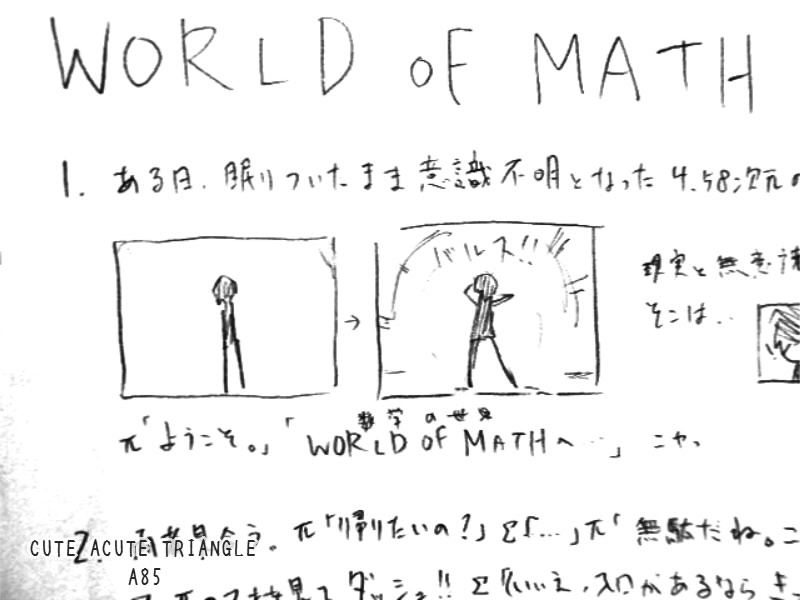 WORLD OF MATH
1. ある日、眠りついたまま意識不明となった4.58次元の
バルス!!
現実と無意識
そこは…
→
数学の世界
π「ようこそ。」「WORLD OF MATHへ…」ニヤッ
2. 両者見合う。π「帰りたいの?」Σ「…」π「無駄だね。こ
見てダッシュ!! Σ「いいえ、入口があるなら き
CUTE ACUTE TRIANGLE
A85